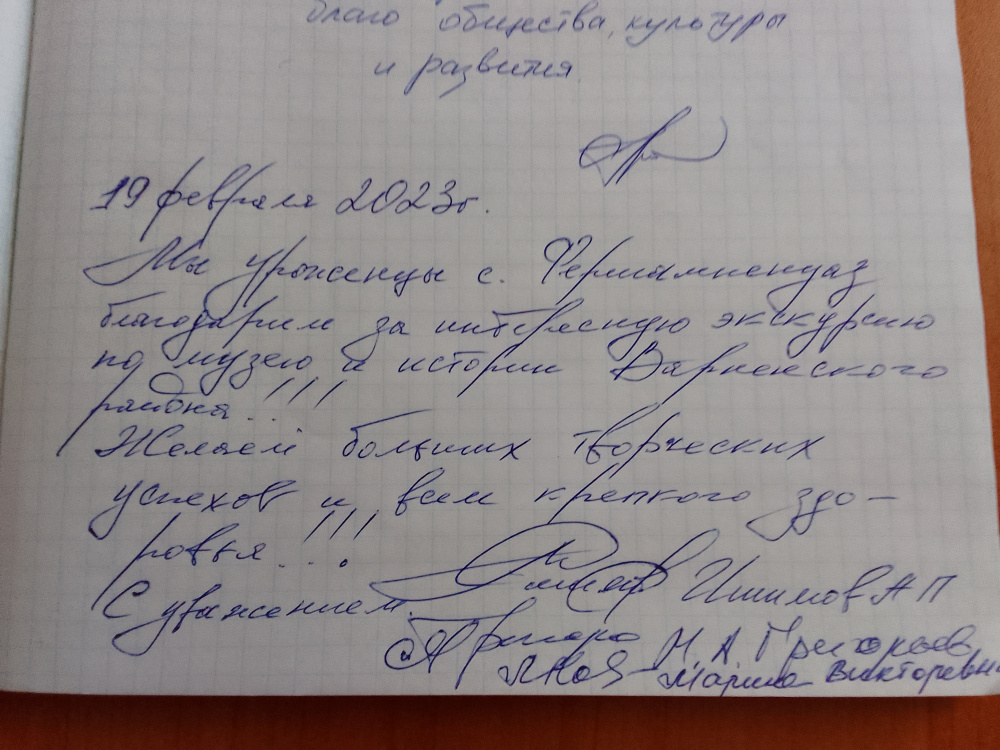 благо общества, культуры
и развития
19 февраля 2023г.
Мы уроженцы с. Фершампенуаз
благодарим за интересную экскурсию
по музею и истории Варненского
района...!!!
Желаем больших творческих
успехов и всем крепкого здо-
ровья...!!!
С уважением. Ишимов А П
Н. А. Григорьев
Марина Викторевна